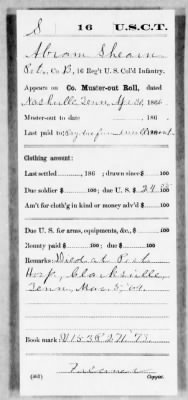 S 16 U.S.C.T.
Abram Shearn
Pvt., Co. B, 16 Reg't U. S. Col'd Infantry.
Appears on Co. Muster-out Roll, dated
Nashville, Tenn, Apr 30, 1866.
Muster-out to date , 186 .
Last paid to
Clothing account:
Last settled , 186 ; drawn since $ 100
Due soldier $ 100; due U. S. $ 24 100
Am't for cloth'g in kind or money adv'd $ 100
Due U. S. for arms, equipments, &c., $ 100
Bounty paid $ 100; due $ 100
Remarks: Died at Post
Hosp., Clarksville,
Tenn, Mar. 5, '64.
Book mark:
(361) Copyist.